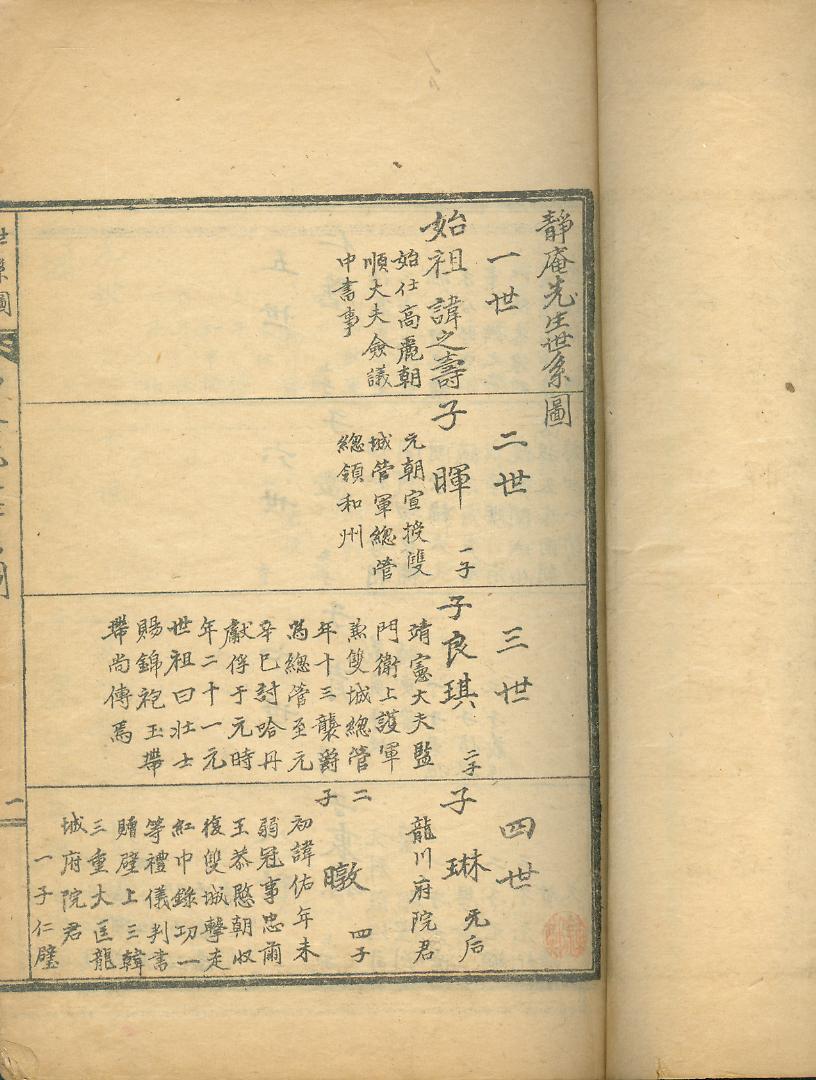 靜庵先生世系圖
一世
始祖諱之壽
始仕高麗朝
順大夫僉議
中書事
二世
子暉 一子
元朝宣授雙
城管軍總管
總領和州
三世
子良琪 二子
靖憲大夫監
門衛上護軍
兼雙城總管
年十三襲爵
爲總管至元
辛巳討哈丹
獻俘于元時
年二十一元
世祖曰壯士
賜錦袍玉帶
帶尚傳焉
四世
子琳 无后
龍川府院君
二子暾 四子
初諱佑年未
弱冠事忠肅
王恭愍朝收
復雙城擊走
紅巾錄功一
等禮儀判書
贈壁上三韓
三重大匡龍
城府院君
一子仁壁
世系圖
一